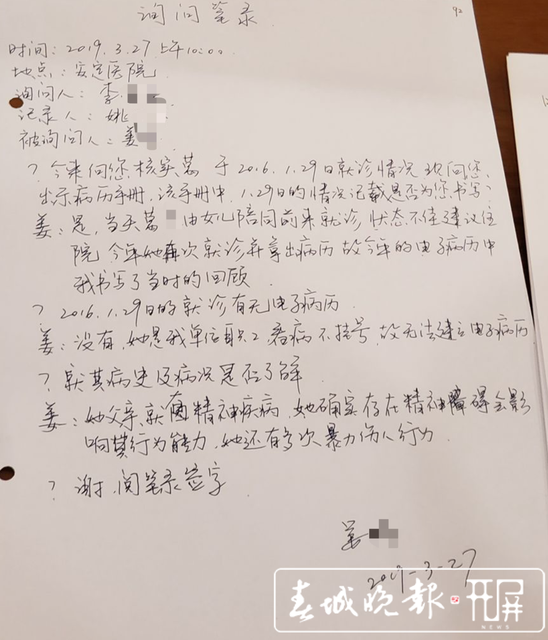 询问笔录
92
时间：2019.3.27上午10:00
地点：安定医院
询问人：李
记录人：姚
被询问人：姜
？今来问您核实葛 于2016.1.29日就诊情况 现向您
出示病历手册，该手册中，1.29日的情况记载是否为您书写？
姜：是，当天葛 由女儿陪同前来就诊 状态不佳建议住
院 今年她再次就诊并拿出病历 故今年的电子病历中
我书写了当时的回顾
？2016.1.29日的就诊有无电子病历
姜：没有，她是我单位职工 看病不挂号，故无法建立电子病历
？就其病史及病况是否了解
姜：她父亲就有精神疾病，她确实存在精神障碍会影
响其行为能力，她还有多次暴力伤人行为．
？谢，阅笔录签字
姜
2019-3-27
春城晚报 开屏
NEWS